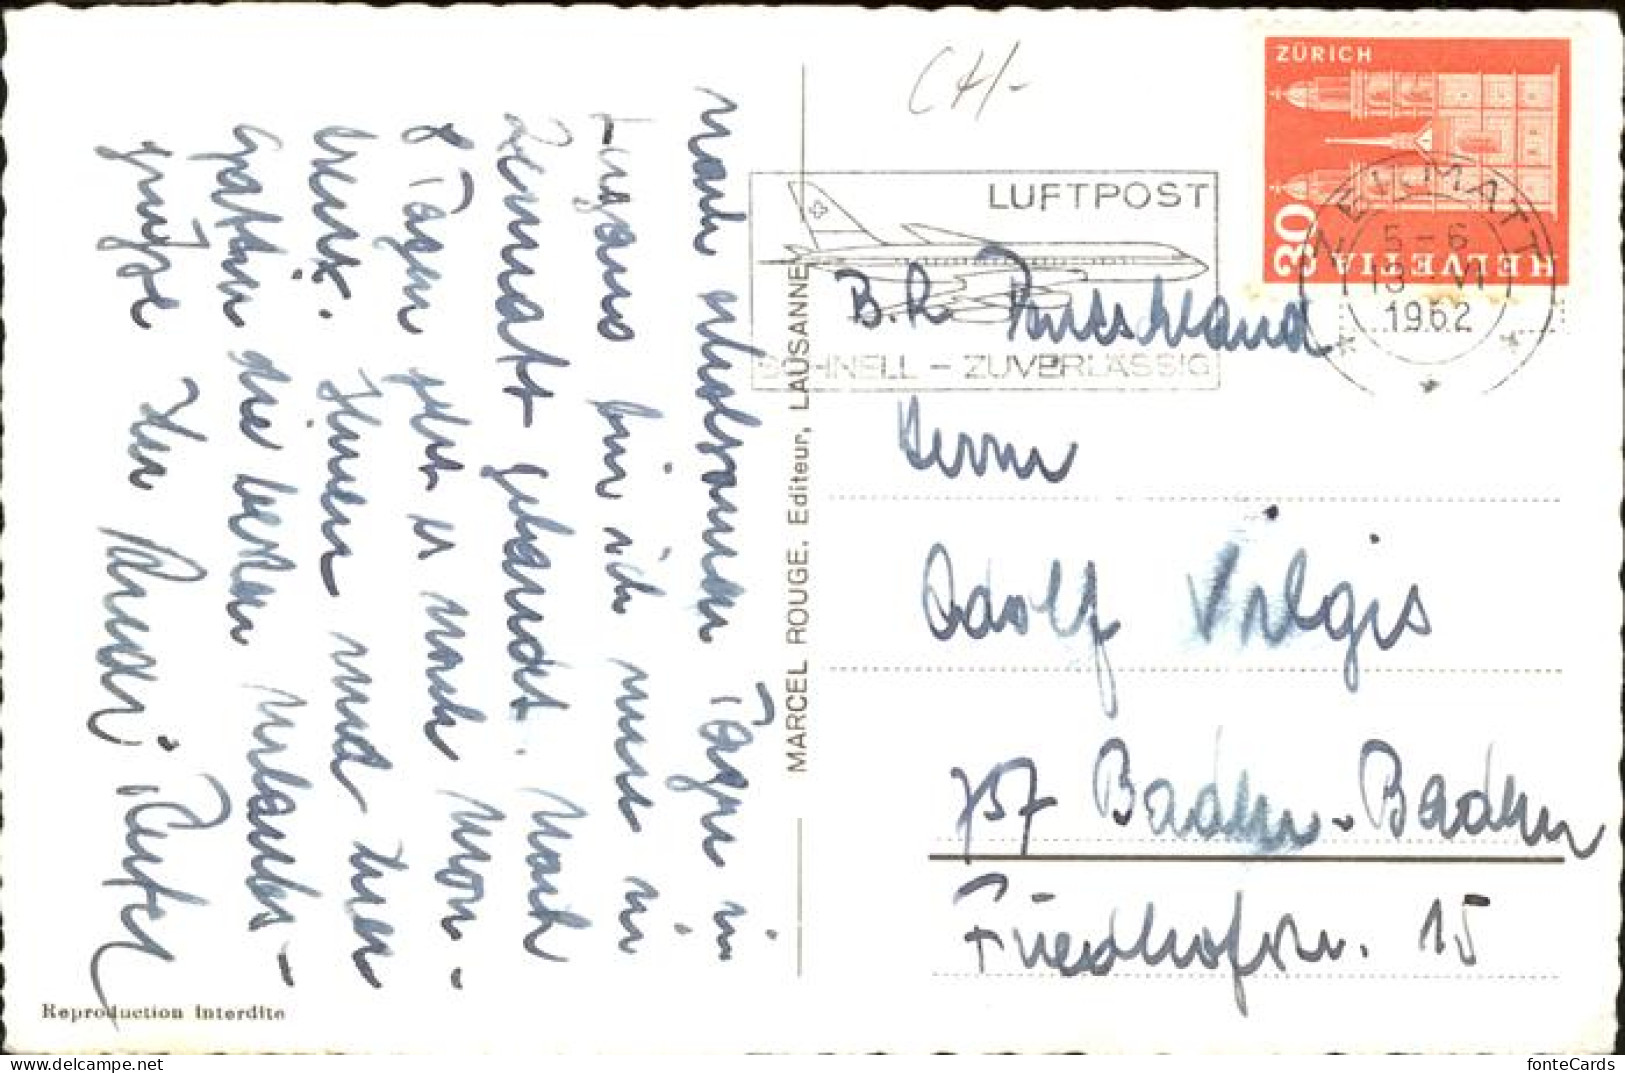 Nach erholsamen Tagen in
Lugano bin ich nun in
Zermatt gelandet. Nach
8 Tagen geht es nach Mon-
treux. Ihnen und Ihrer
Gattin die besten Urlaubs-
grüße Ihr
CH/-
ZÜRICH
30
HELVETIA
ZERMATT
5-6
13 VI
1962
LUFTPOST
SCHNELL - ZUVERLÄSSIG
B.R. Deutschland
Herrn
Adolf Vilgis
757 Baden-Baden
Friedhofstr. 15
MARCEL ROUGE. Editeur, LAUSANNE
Reproduction interdite
fonteCards